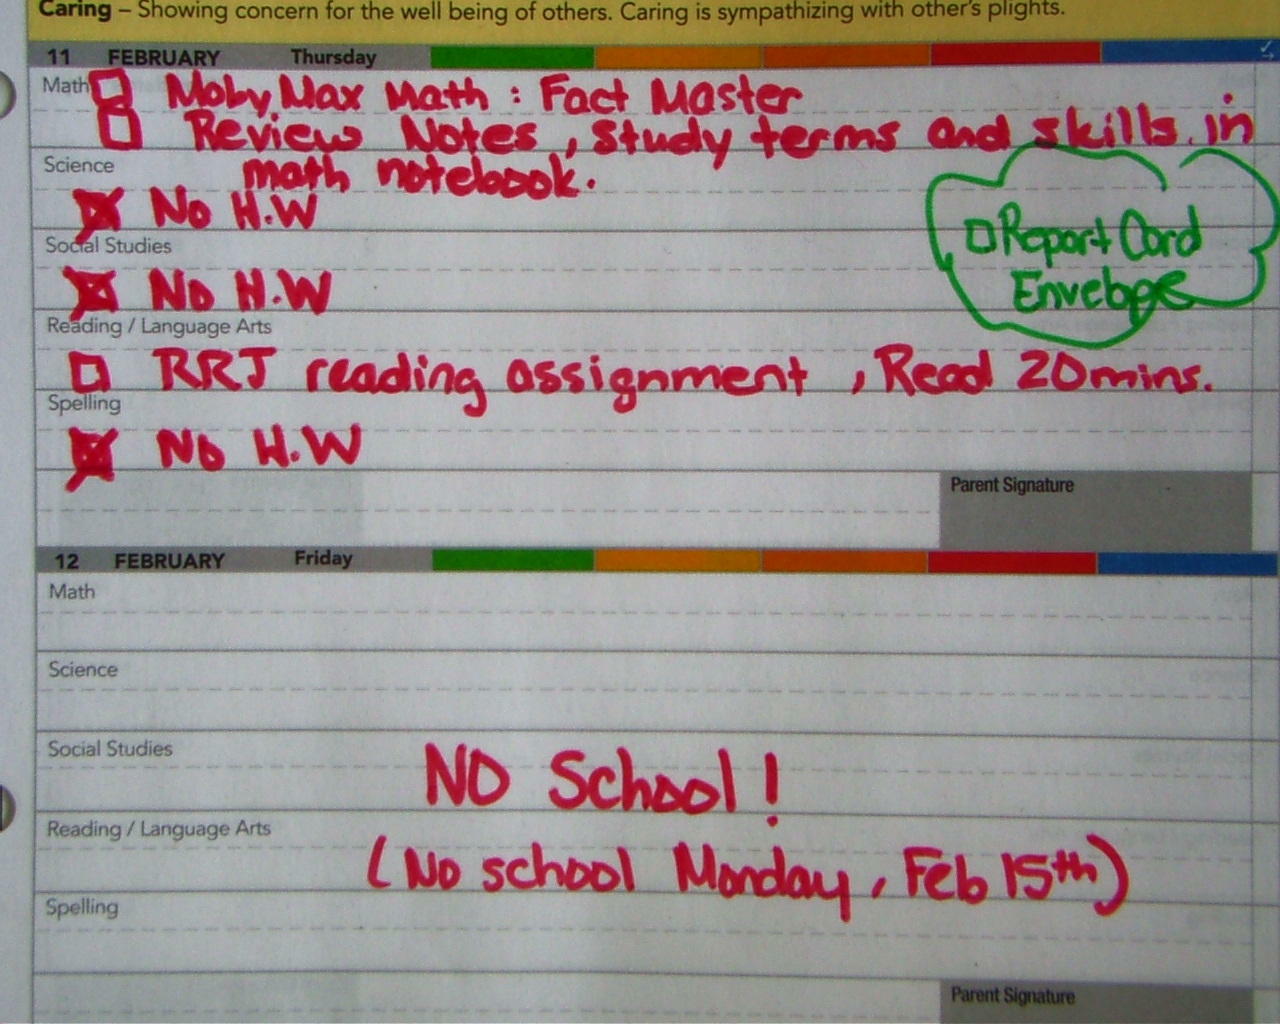 Caring – Showing concern for the well being of others. Caring is sympathizing with other's plights.
11 FEBRUARY Thursday
Math
Moby Max Math : Fact Master
Review Notes, Study terms and skills in
math notebook.
Science
No H.W
Report Card
Envelope
Social Studies
No H.W
Reading / Language Arts
RRJ reading assignment, Read 20mins.
Spelling
No H.W
Parent Signature
12 FEBRUARY Friday
Math
Science
Social Studies
NO School!
Reading / Language Arts
(No school Monday, Feb 15th)
Spelling
Parent Signature